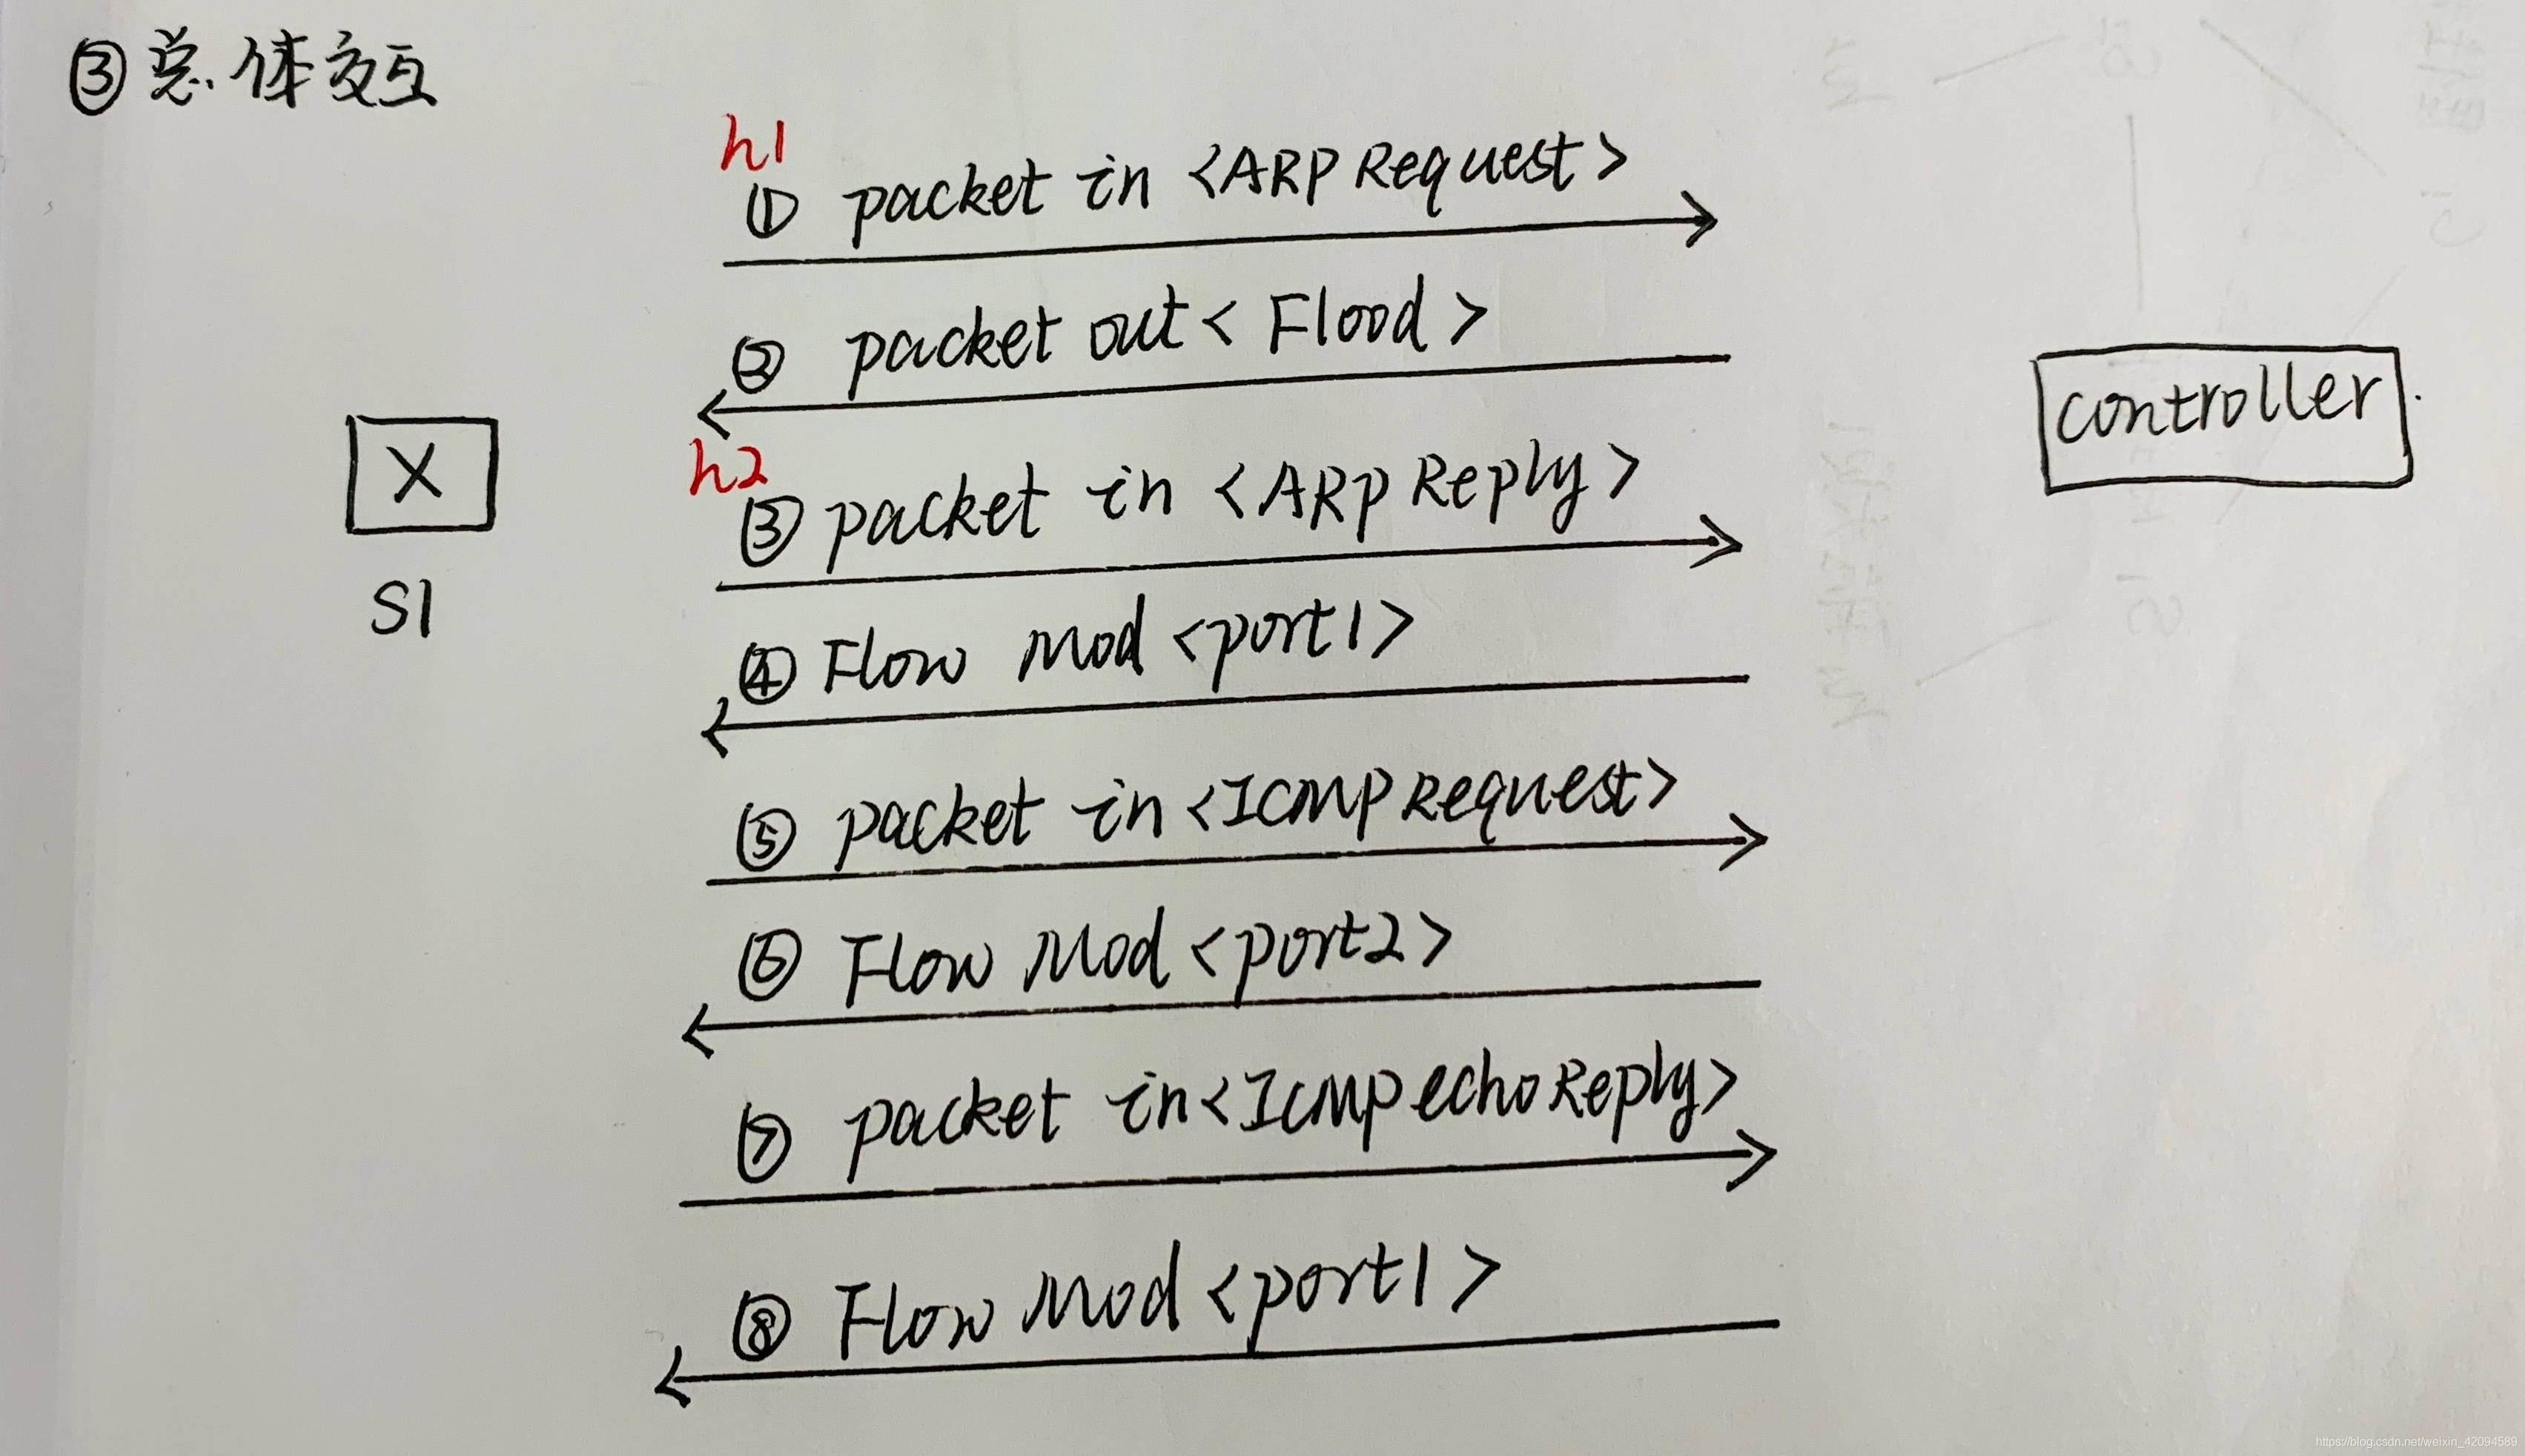 ③总体交互
h1
① packet in <ARP Request>
② packet out < Flood >
controller
h2
③ packet in <ARP Reply>
X
S1
④ Flow Mod <port1>
⑤ packet in <ICMP Request>
⑥ Flow Mod <port2>
⑦ packet in <ICMP echo Reply>
⑧ Flow Mod <port1>
https://blog.csdn.net/weixin_42094589